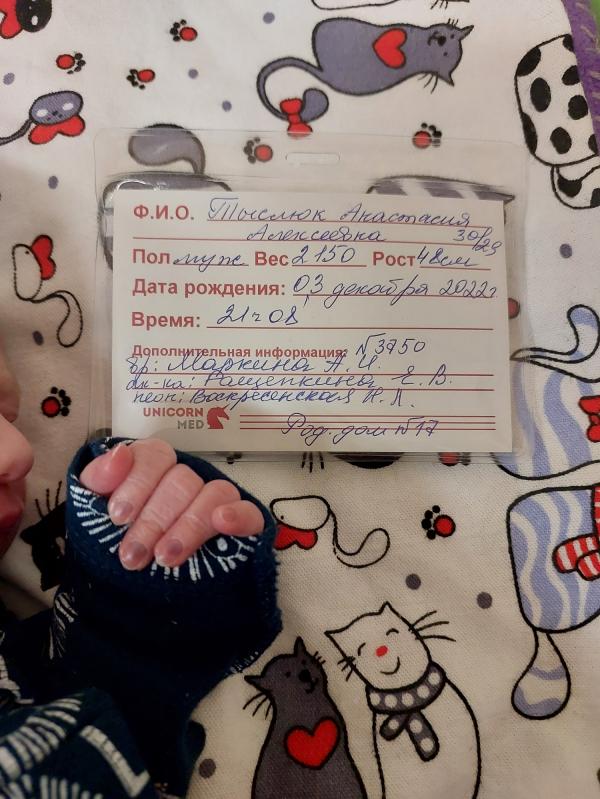 Ф.И.О. Тыслюк Анастасия
Алексеевна 30/29
Пол муж Вес 2150 Рост 48см
Дата рождения: 03 декабря 2022г.
Время: 21ч 08
Дополнительная информация: N3750
вр: Маркина А.И.
ак-ка: Ращепкина Е.В.
неон: Воскресенская Н.Л.
UNICORN
MED
Род. дом N17